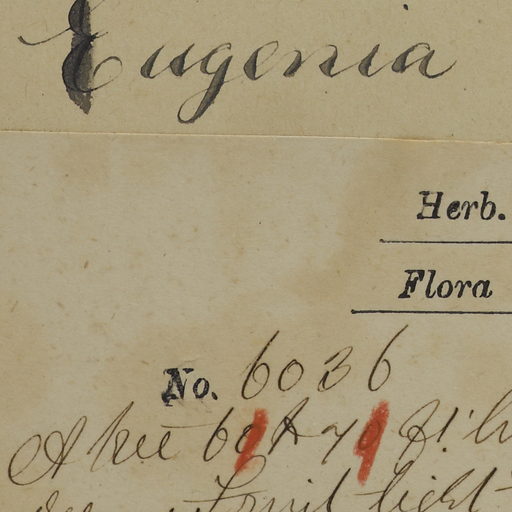 Eugenia
Herb.
Flora
No. 6036
A tree 60 to 70 ft.
Fruit light